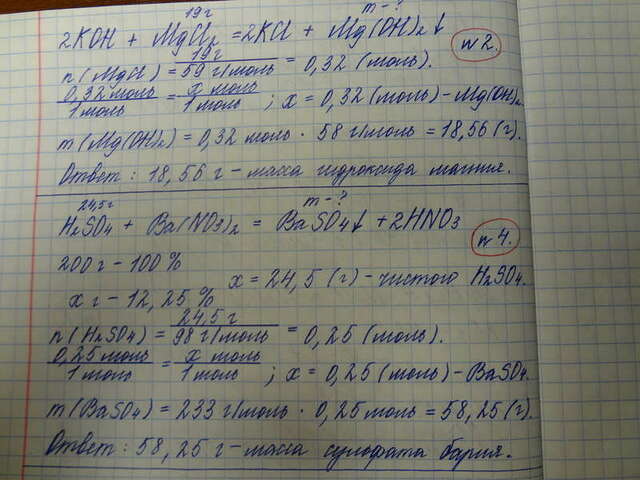 19 г m - ?
2KOH + MgCl₂ = 2KCl + Mg(OH)₂↓ №2.
19 г
n(MgCl) = 59 г/моль = 0,32 (моль).
0,32 моль x моль
1 моль = 1 моль ; x = 0,32 (моль) - Mg(OH)₂.
m(Mg(OH)₂) = 0,32 моль · 58 г/моль = 18,56 (г).
Ответ: 18,56 г - масса гидроксида магния.
24,5 г m - ?
H₂SO₄ + Ba(NO₃)₂ = BaSO₄↓ + 2HNO₃ №4.
200 г - 100 %
x г - 12,25 % x = 24,5 (г) - чистого H₂SO₄.
24,5 г
n(H₂SO₄) = 98 г/моль = 0,25 (моль).
0,25 моль x моль
1 моль = 1 моль ; x = 0,25 (моль) - BaSO₄.
m(BaSO₄) = 233 г/моль · 0,25 моль = 58,25 (г).
Ответ: 58,25 г - масса сульфата бария.